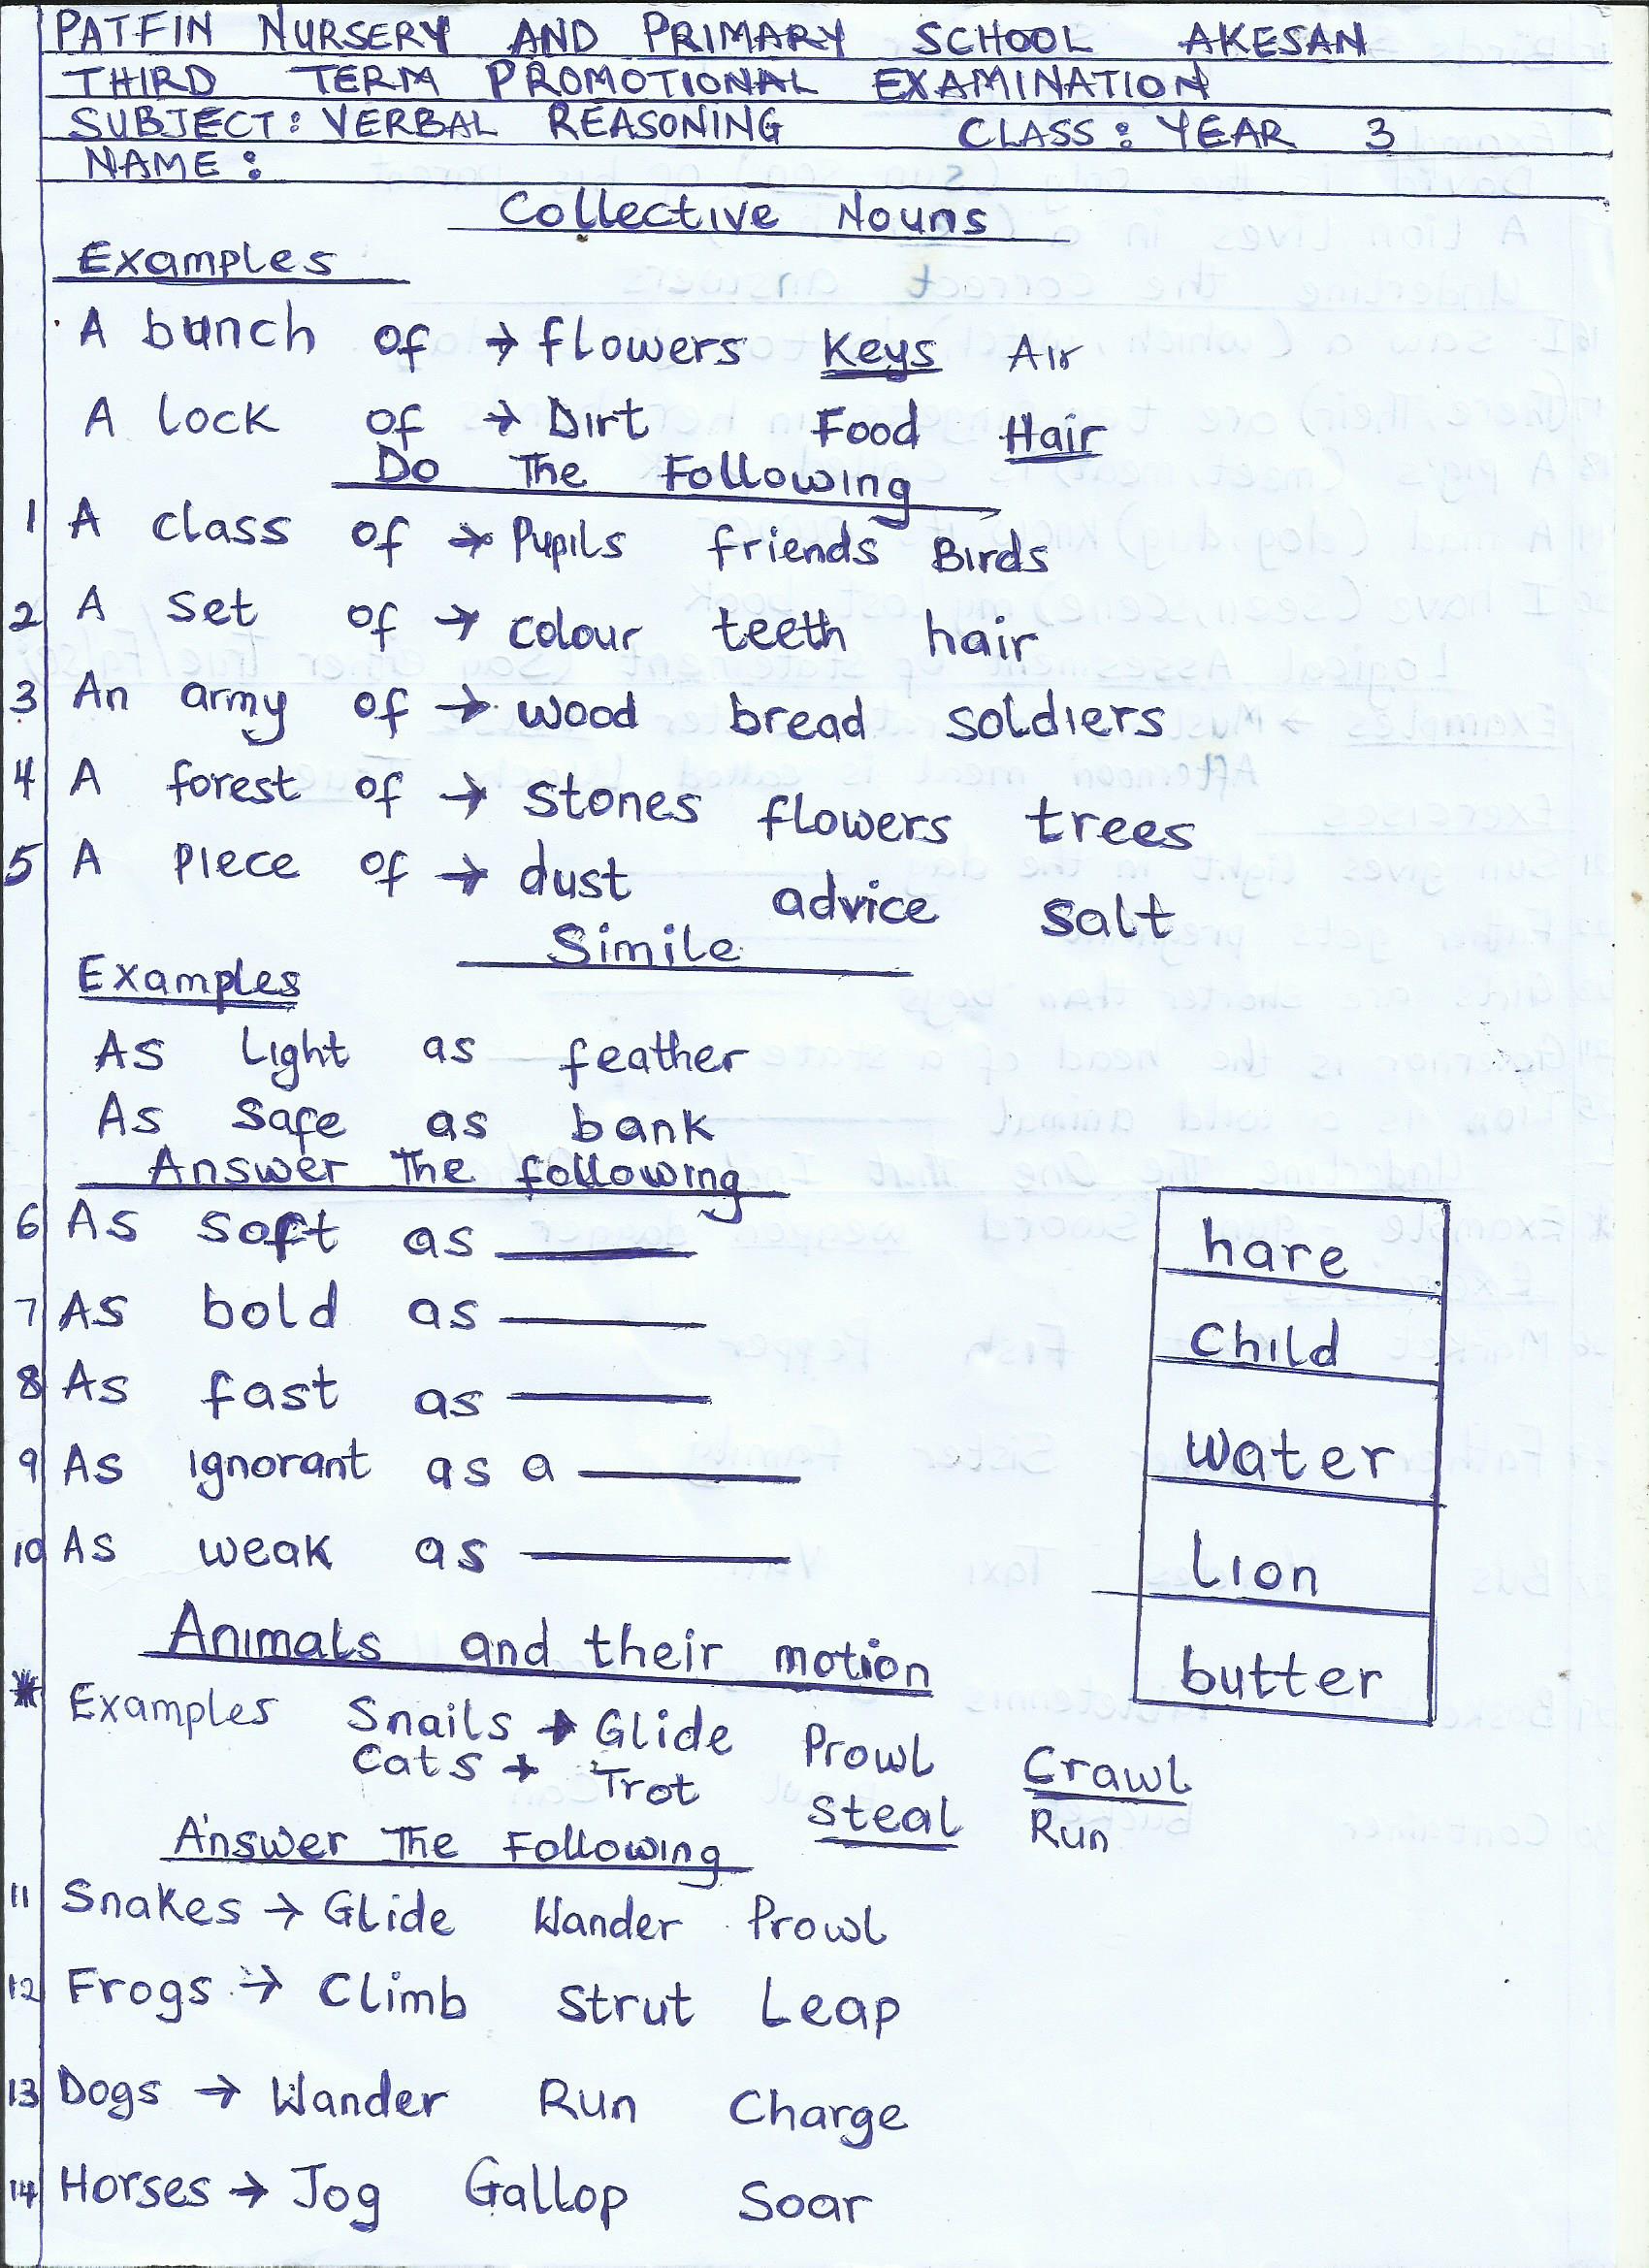 PATFIN NURSERY AND PRIMARY SCHOOL AKESAN
THIRD TERM PROMOTIONAL EXAMINATION
SUBJECT: VERBAL REASONING CLASS: YEAR 3
NAME:
Collective Nouns
Examples
A bunch of → flowers Keys Air
A lock of → Dirt Food Hair
Do The Following
1 A class of → Pupils friends Birds
2 A set of → colour teeth hair
3 An army of → wood bread soldiers
4 A forest of → stones flowers trees
5 A piece of → dust advice salt
Simile
Examples
As light as feather
As safe as bank
Answer The following
6 As soft as ______
7 As bold as ______
8 As fast as ______
9 As ignorant as a ______
10 As weak as ______
hare
Child
water
Lion
butter
Animals and their motion
* Examples Snails → Glide Prowl Crawl
Cats → Trot Steal Run
Answer The Following
11 Snakes → Glide Wander Prowl
12 Frogs → Climb Strut Leap
13 Dogs → Wander Run Charge
14 Horses → Jog Gallop Soar